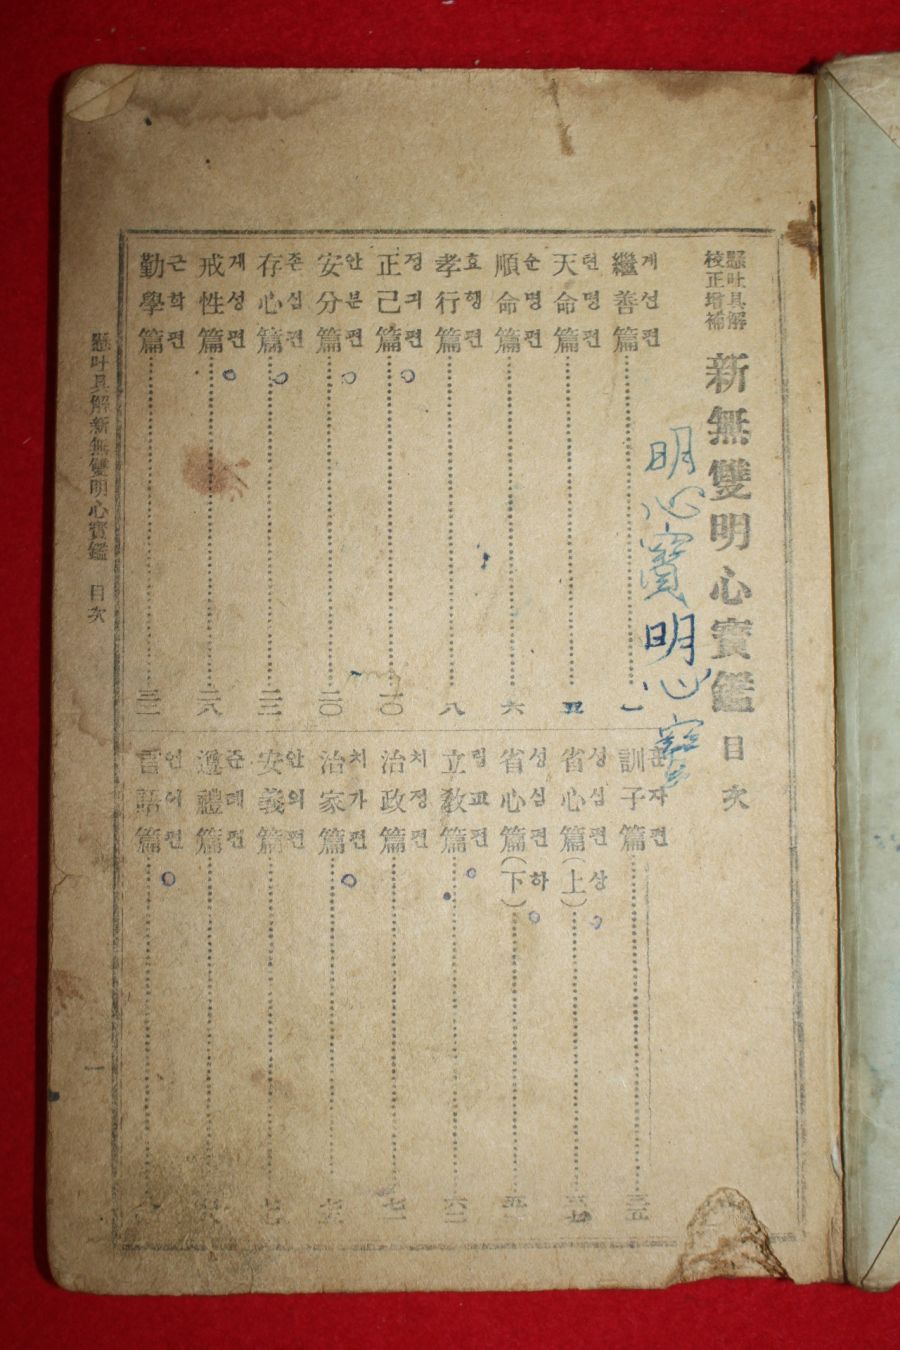 懸吐具解
校正增補
新無雙明心寶鑑 目次
明心寶明心寶
繼善篇 계선편 一
天命篇 텬명편 五
順命篇 순명편 六
孝行篇 효행편 八
正己篇 정긔편 一〇
安分篇 안분편 二〇
存心篇 존심편
戒性篇 계성편 二八
勤學篇 근학편
訓子篇 훈자편 三五
省心篇(上) 성심편상 三七
省心篇(下) 성심편하
立敎篇 립교편 六二
治政篇 치정편 七一
治家篇 치가편
安義篇 안의편
遵禮篇 준례편
言語篇 언어편
懸吐具解新無雙明心寶鑑 目次 一